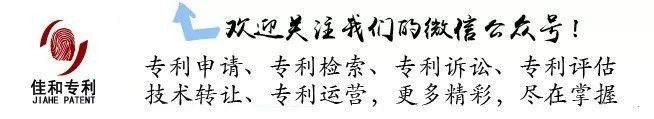 欢迎关注我们的微信公众号！
佳和专利
JIAHE PATENT
专利申请、专利检索、专利诉讼、专利评估
技术转让、专利运营，更多精彩，尽在掌握